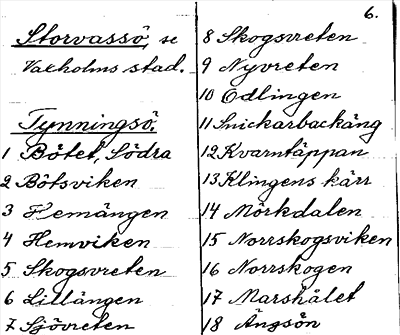 6.
Storvassö, se
Vaxholms stad.
Tynningsö.
1 Bötet, Södra
2 Bötsviken
3 Hemängen
4 Hemviken
5 Skogsvreten
6 Lillängen
7 Sjövreten
8 Skogsvreten
9 Nyvreten
10 Edlingen
11 Snickarbackäng
12 Kvarntäppan
13 Klingens kärr
14 Mörkdalen
15 Norrskogsviken
16 Norrskogen
17 Marshålet
18 Ängsön